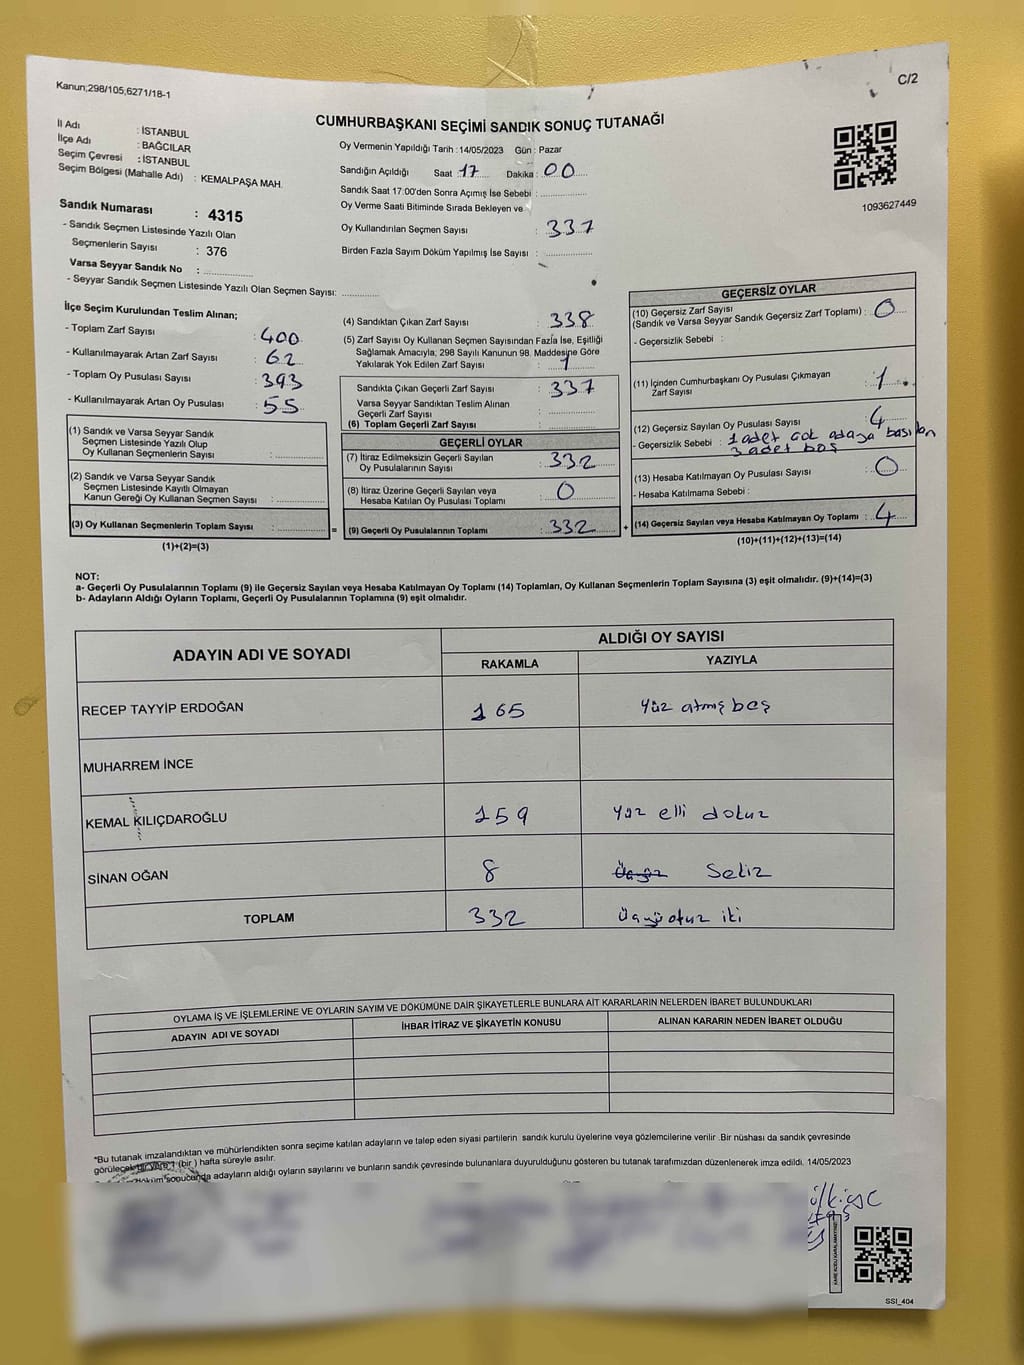 Kanun;298/105,6271/18-1
C/2
CUMHURBAŞKANI SEÇİMİ SANDIK SONUÇ TUTANAĞI
İl Adı : İSTANBUL
İlçe Adı : BAĞCILAR
Seçim Çevresi : İSTANBUL
Seçim Bölgesi (Mahalle Adı) : KEMALPAŞA MAH.
Sandık Numarası : 4315
- Sandık Seçmen Listesinde Yazılı Olan
Seçmenlerin Sayısı : 376
Varsa Seyyar Sandık No :
- Seyyar Sandık Seçmen Listesinde Yazılı Olan Seçmen Sayısı:
Oy Vermenin Yapıldığı Tarih : 14/05/2023 Gün : Pazar
Sandığın Açıldığı Saat 17 Dakika : 00
Sandık Saat 17:00'den Sonra Açımış İse Sebebi :
Oy Verme Saati Bitiminde Sırada Bekleyen ve
Oy Kullandırılan Seçmen Sayısı : 337
Birden Fazla Sayım Döküm Yapılmış İse Sayısı :
1093627449
İlçe Seçim Kurulundan Teslim Alınan;
- Toplam Zarf Sayısı : 400
- Kullanılmayarak Artan Zarf Sayısı : 62
- Toplam Oy Pusulası Sayısı : 393
- Kullanılmayarak Artan Oy Pusulası : 55
(1) Sandık ve Varsa Seyyar Sandık
Seçmen Listesinde Yazılı Olup
Oy Kullanan Seçmenlerin Sayısı :
(2) Sandık ve Varsa Seyyar Sandık
Seçmen Listesinde Kayıtlı Olmayan
Kanun Gereği Oy Kullanan Seçmen Sayısı :
(3) Oy Kullanan Seçmenlerin Toplam Sayısı : =
(1)+(2)=(3)
(4) Sandıktan Çıkan Zarf Sayısı : 338
(5) Zarf Sayısı Oy Kullanan Seçmen Sayısından Fazla İse, Eşitliği
Sağlamak Amacıyla, 298 Sayılı Kanunun 98. Maddesine Göre
Yakılarak Yok Edilen Zarf Sayısı : 1
Sandıkta Çıkan Geçerli Zarf Sayısı : 337
Varsa Seyyar Sandıktan Teslim Alınan
Geçerli Zarf Sayısı :
(6) Toplam Geçerli Zarf Sayısı :
GEÇERLİ OYLAR
(7) İtiraz Edilmeksizin Geçerli Sayılan
Oy Pusulalarının Sayısı : 332
(8) İtiraz Üzerine Geçerli Sayılan veya
Hesaba Katılan Oy Pusulası Toplamı : 0
(9) Geçerli Oy Pusulalarının Toplamı : 332 +
GEÇERSİZ OYLAR
(10) Geçersiz Zarf Sayısı
(Sandık ve Varsa Seyyar Sandık Geçersiz Zarf Toplamı) : 0
- Geçersizlik Sebebi :
(11) İçinden Cumhurbaşkanı Oy Pusulası Çıkmayan
Zarf Sayısı : 1
(12) Geçersiz Sayılan Oy Pusulası Sayısı : 4
- Geçersizlik Sebebi : 1 adet çok adaya basılan
3 adet boş
(13) Hesaba Katılmayan Oy Pusulası Sayısı : 0
- Hesaba Katılmama Sebebi :
(14) Geçersiz Sayılan veya Hesaba Katılmayan Oy Toplamı : 4
(10)+(11)+(12)+(13)=(14)
NOT:
a- Geçerli Oy Pusulalarının Toplamı (9) ile Geçersiz Sayılan veya Hesaba Katılmayan Oy Toplamı (14) Toplamları, Oy Kullanan Seçmenlerin Toplam Sayısına (3) eşit olmalıdır. (9)+(14)=(3)
b- Adayların Aldığı Oyların Toplamı, Geçerli Oy Pusulalarının Toplamına (9) eşit olmalıdır.
ADAYIN ADI VE SOYADI ALDIĞI OY SAYISI
RAKAMLA YAZIYLA
RECEP TAYYİP ERDOĞAN 165 Yüz atmış beş
MUHARREM İNCE
KEMAL KILIÇDAROĞLU 159 Yüz elli dokuz
SİNAN OĞAN 8 Sekiz
TOPLAM 332 Üçyüz otuz iki
OYLAMA İŞ VE İŞLEMLERİNE VE OYLARIN SAYIM VE DÖKÜMÜNE DAİR ŞİKAYETLERLE BUNLARA AİT KARARLARIN NELERDEN İBARET BULUNDUKLARI
ADAYIN ADI VE SOYADI İHBAR İTİRAZ VE ŞİKAYETİN KONUSU ALINAN KARARIN NEDEN İBARET OLDUĞU
*Bu tutanak imzalandıktan ve mühürlendikten sonra seçime katılan adayların ve talep eden siyasi partilerin sandık kurulu üyelerine veya gözlemcilerine verilir .Bir nüshası da sandık çevresinde
görülecek bir yere 1 (bir ) hafta süreyle asılır.
sonucunda adayların aldığı oyların sayılarını ve bunların sandık çevresinde bulunanlara duyurulduğunu gösteren bu tutanak tarafımızdan düzenlenerek imza edildi. 14/05/2023
KARE KODU KARALAMAYINIZ
SSI_404